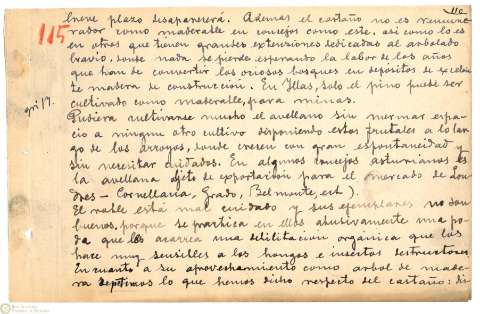 110
115
breve plazo desaparecerá. Además el castaño no es remune
rador como maderable en concejos como este, así como lo es
en otros que tienen grandes extensiones dedicadas al arbolado
bravío, donde nada se pierde esperando la labor de los años
que han de convertir los ociosos bosques en depósitos de excelen
te madera de construcción. En Illas, solo el pino puede ser
cultivado como maderable, para minas.
Pudiera cultivarse mucho el avellano sin mermar espa
cio a ningun otro cultivo disponiendo estos frutales a lo lar
go de los arroyos, donde crecen con gran espontaneidad y
sin necesitar cuidados. En algunos concejos asturianos es
la avellana objeto de exportación para el mercado de Lon
dres — Cornellana, Grado, Belmonte, ect ).
El roble está mal cuidado y sus ejemplares no son
buenos, porque se practica en ellos abusivamente una po
da que les acarrea una debilitación orgánica que los
hace muy sensibles a los hongos e insectos destructores
En cuanto a su aprovechamiento como arbol de made
ra repetimos lo que hemos dicho respecto del castaño: di